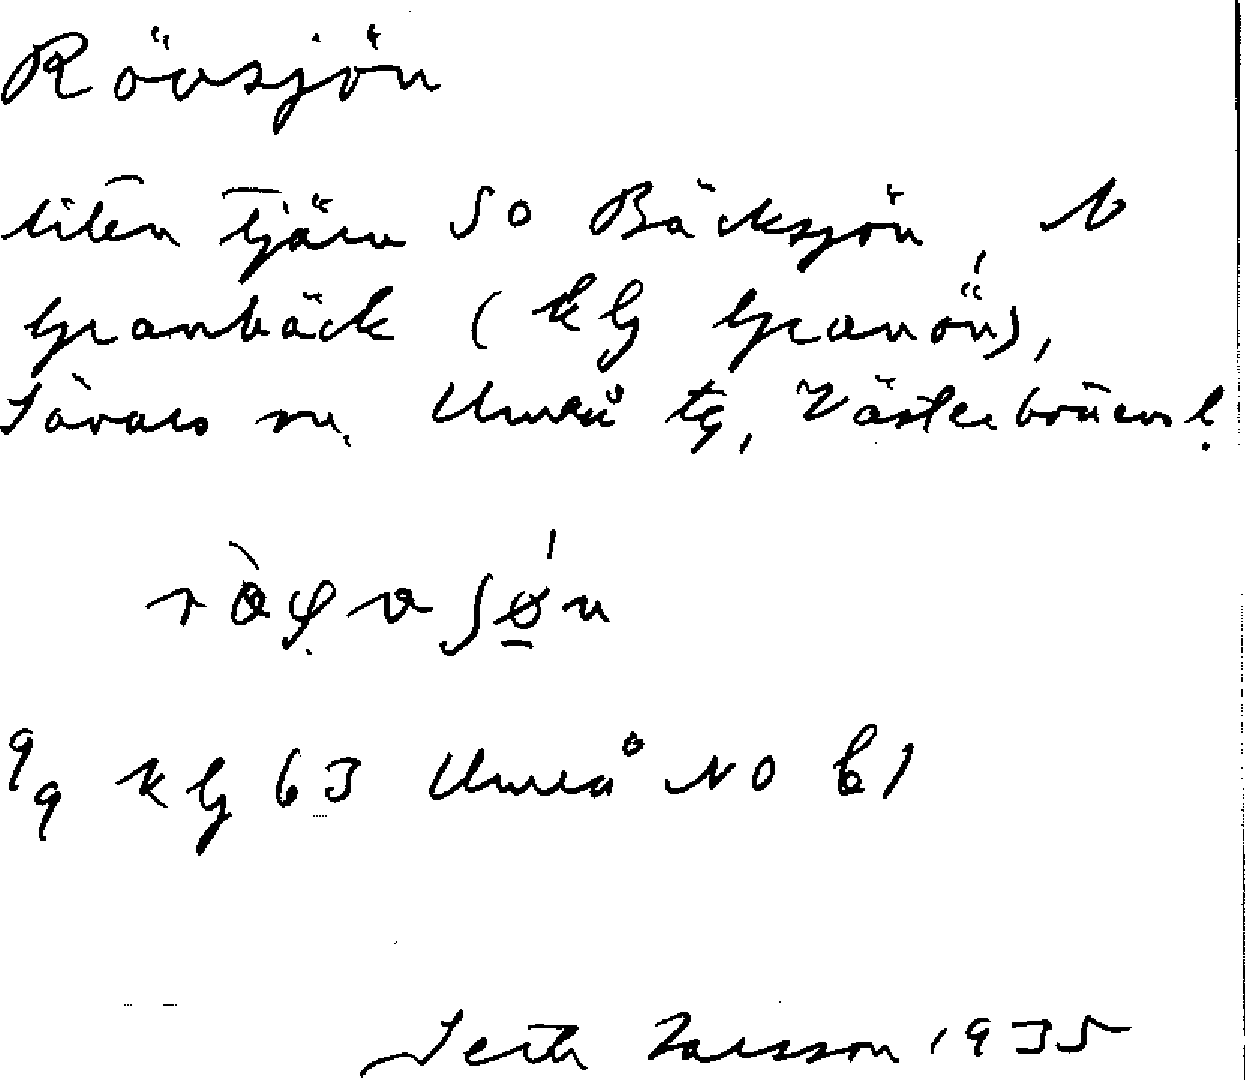 Rövsjön
liten tjärn SO Bäcksjön, N
Granbäck (kg Granön),
Sävars sn, Umeå tg, Västerbottens l.
kg 63 Umeå NO bl
Seth Larsson 1935